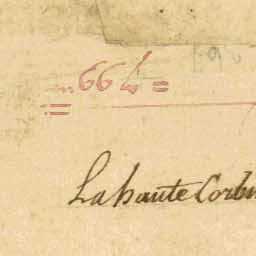 664=
La haute Corb